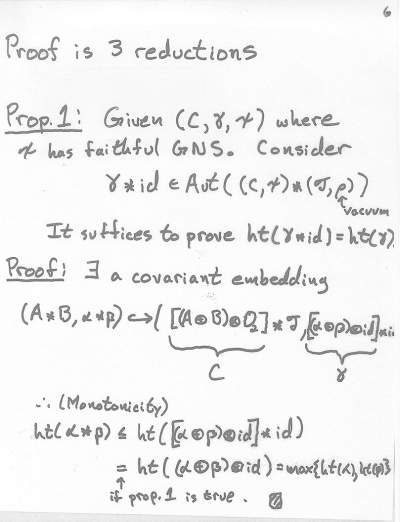 6
Proof is 3 reductions
Prop. 1: Given (C, γ, ψ) where
ψ has faithful GNS. Consider
γ * id ∈ Aut((C, ψ) * (𝒯, ρ))
↑ vacuum
It suffices to prove ht(γ * id) = ht(γ).
Proof: ∃ a covariant embedding
(A * B, α * β) ↪ ([(A ⊕ B) ⊗ O₂] * 𝒯, [(α ⊕ β) ⊗ id] * id
C γ
∴ (Monotonicity)
ht(α * β) ≤ ht([(α ⊕ β) ⊗ id] * id)
= ht((α ⊕ β) ⊗ id) = max{ht(α), ht(β)}
↑
if prop. 1 is true.